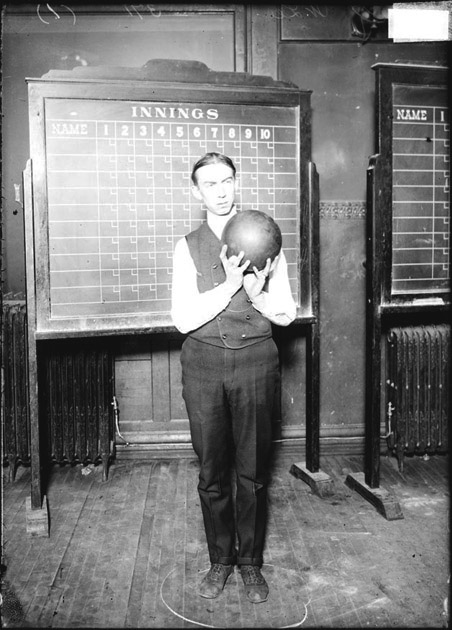 INNINGS
NAME 1 2 3 4 5 6 7 8 9 10
NAME 1